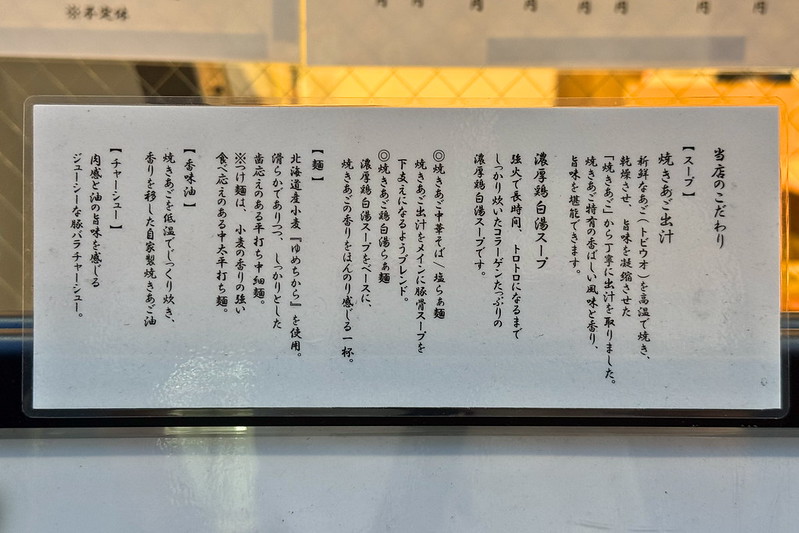 ※不定休
円
円
円
円
円
円
円
円
当店のこだわり
【スープ】
焼きあご出汁
新鮮なあご(トビウオ)を高温で焼き、
乾燥させ、旨味を凝縮させた
「焼きあご」から丁寧に出汁を取りました。
焼きあご特有の香ばしい風味と香り、
旨味を堪能できます。
濃厚鶏白湯スープ
強火で長時間、トロトロになるまで
しっかり炊いたコラーゲンたっぷりの
濃厚鶏白湯スープです。
◎焼きあご中華そば・塩らぁ麺
焼きあご出汁をメインに豚骨スープを
下支えになるようブレンド。
◎焼きあご鶏白湯らぁ麺
濃厚鶏白湯スープをベースに、
焼きあごの香りをほんのり感じる一杯。
【麺】
北海道産小麦『ゆめちから』を使用。
滑らかでありつつ、しっかりとした
歯応えのある平打ち中細麺。
※つけ麺は、小麦の香りの強い
食べ応えのある中太平打ち麺。
【香味油】
焼きあごを低温でじっくり炊き、
香りを移した自家製焼きあご油
【チャーシュー】
肉感と油の旨味を感じる
ジューシーな豚バラチャーシュー。